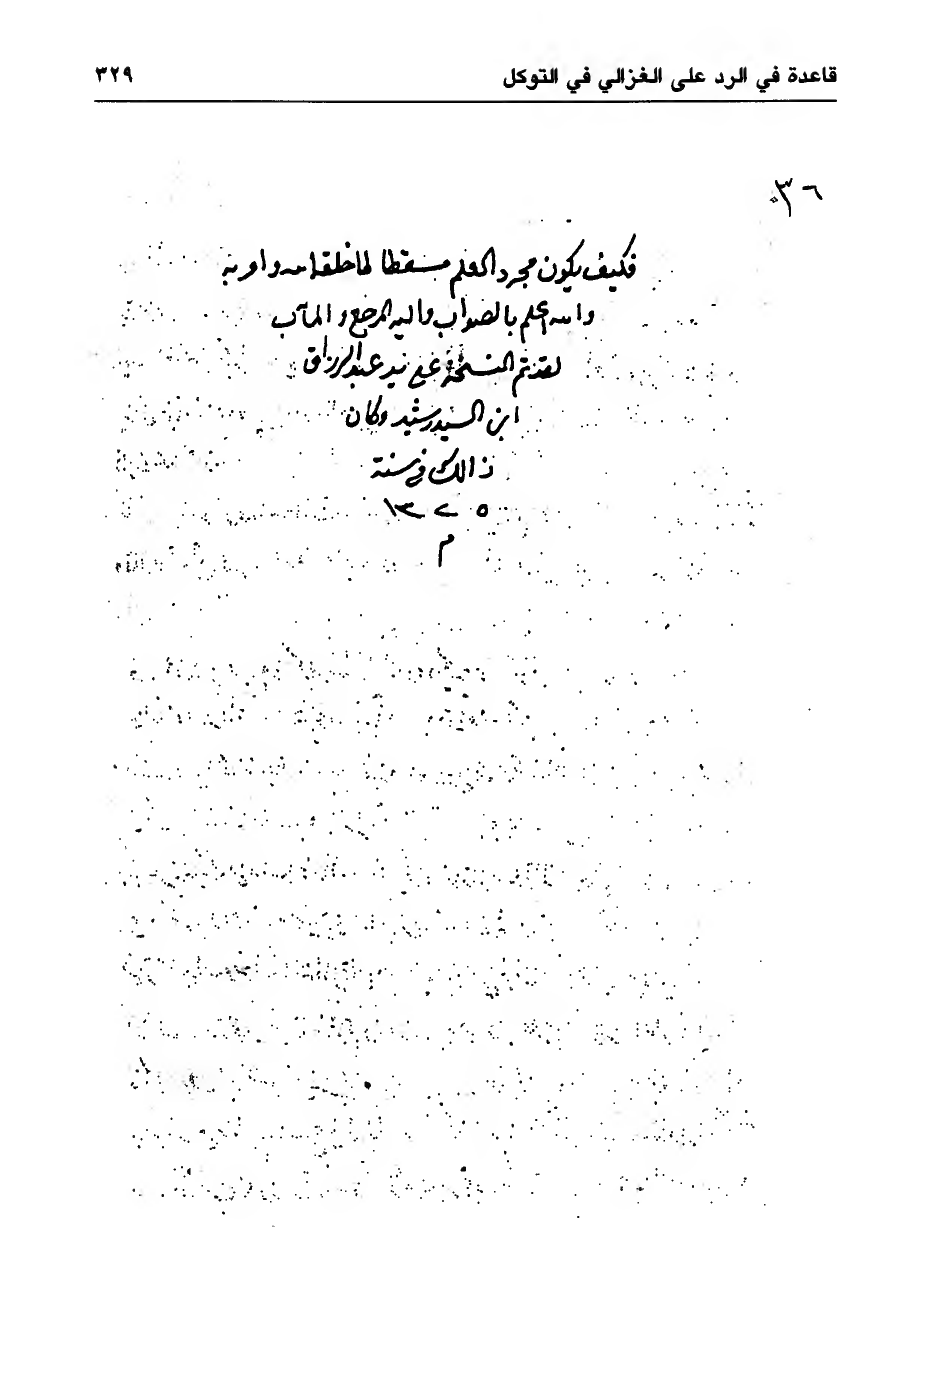 قاعدة في الرد على الغزالي في التوكل ٣٢٩
٣٦
فكيف يكون مجرد العلم مسقطا لما خلقه الله وامر به
والله اعلم بالصواب واليه المرجع والمآب
لقد تم النسخة في على يد عبد الرزاق
ابن السيد رشيد وكان
ذالك في سنة
١٣٢٥
م